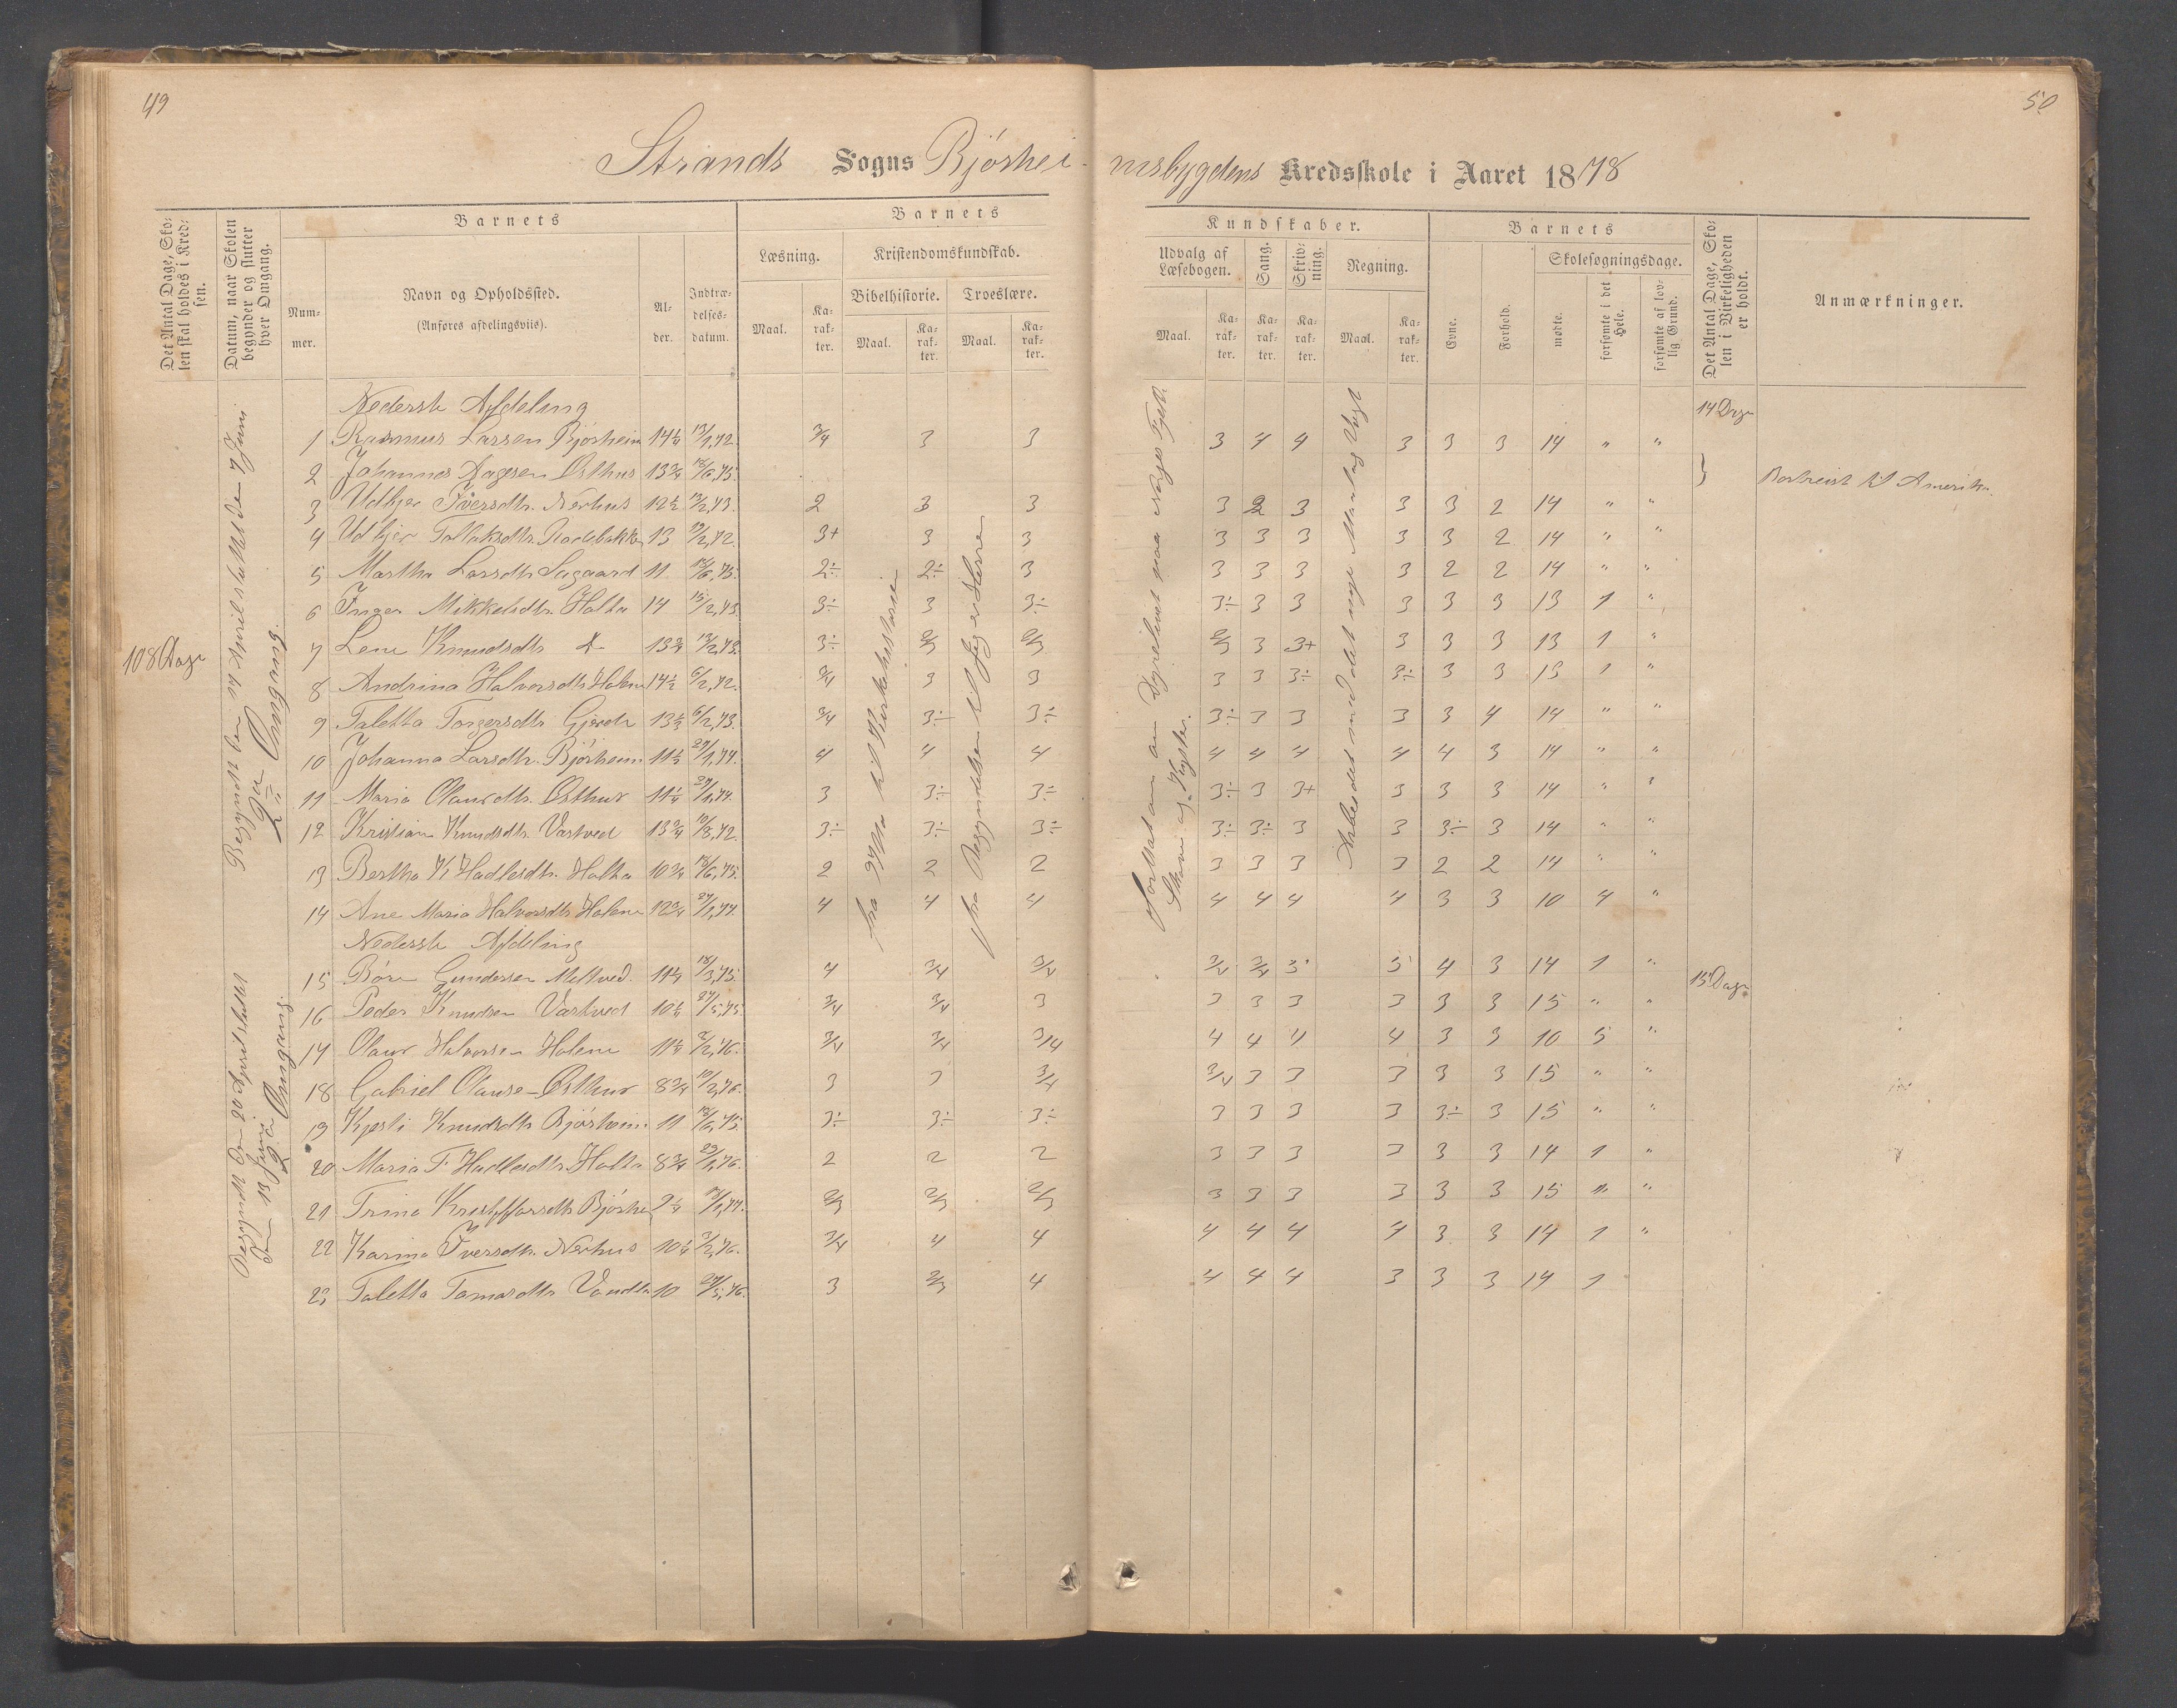 49
50
Strands Sogns Bjørhei-
msbygdens Kredsskole i Aaret 1878
Det Antal Dage, Sko-
len skal holdes i Kred-
sen.
Datum, naar Skolen
begynder og slutter
hver Omgang.
Num-
mer.
Barnets
Navn og Opholdssted.
(Anføres afdelingsviis).
Al-
der.
Indtræ-
delses-
datum.
Barnets
Læsning.
Maal.
Ka-
rak-
ter.
Kristendomskundskab.
Bibelhistorie.
Maal.
Ka-
rak-
ter.
Troeslære.
Maal.
Ka-
rak-
ter.
Kundskaber.
Udvalg af
Læsebogen.
Maal.
Ka-
rak-
ter.
Sang.
Ka-
rak-
ter.
Skriv-
ning.
Ka-
rak-
ter.
Regning.
Maal.
Ka-
rak-
ter.
Barnets
Evne.
Forhold.
Skolesøgningsdage.
mødte.
forsømte i det
Hele.
forsømte af lov-
lig Grund.
Det Antal Dage, Sko-
len i Virkeligheden
er holdt.
Anmærkninger.
108 Dage
2den Omgang.
2den Omgang.
fra til Kirkehistorie
fra Begyndelsen til
Nederste Afdeling 14 Dage
1 Rasmus Larsen Bjørheim 14¼ 13/1,72. 3/4 3 3 3 4 4 3 3 3 14 " "
2 Johannes Aagesen Østhus 13¾ 18/6,75. Bortreist til Amerika
3 Udbjør Iversdtr. Nerhus 12½ 13/2,73. 2 3 3 3 2 3 3 3 2 14 " "
4 Udbjør Tollaksdtr. 13 19/2,72. 3+ 3 3 3 3 3 3 3 2 14 " "
5 Martha Larsdtr. Sagaard 11 18/6,75. 2÷ 2÷ 3 3 3 3 3 2 2 14 " "
6 Inger Mikkelsdtr. Holta 14 15/2,73. 3÷ 3 3÷ 3÷ 3 3 3 3 3 13 1 "
7 Lene Knudsdtr. 13¾ 13/2,73. 3÷ 2/3 2/3 2/3 3 3+ 3 3 3 13 1 "
8 Andrina Halvorsdtr. Holene 14½ 6/2,72. 3/4 3 3 3 3 3÷ 3÷ 3 3 13 1 "
9 Taletta Torgersdtr. Gjerde 13½ 6/2,73. 3/4 3÷ 3÷ 3÷ 3 3 3 3 4 14 " "
10 Johanna Larsdtr. Bjørheim 11½ 29/1,74. 4 4 4 4 4 4 4 4 3 14 " "
11 Maria Olausdtr. Østhus 11¼ 29/1,74. 3 3÷ 3÷ 3÷ 3 3+ 3 3 3 14 " "
12 Kristiane Knudsdtr. Vastved 13¾ 12/8,72. 3÷ 3÷ 3÷ 3÷ 3÷ 3 3 3÷ 3 14 " "
13 Bertha K Hadlesdtr. Holta 10¾ 18/6,75. 2 2 2 3 3 3 3 2 2 14 " "
14 Ane Maria Halvorsdtr. Holene 12¾ 29/1,74. 4 4 4 4 4 4 4 3 3 10 4 "
Nederste Afdeling 15 Dage
15 Børe Gundersen 11¼ 18/3,75. 4 3/4 3/4 3/4 3/4 3 3 4 3 14 1 "
16 Peder Knudsen Vastved 10½ 27/5,75. 3/4 3/4 3 3 3 3 3 3 3 15 " "
17 Olaus Halvorsen Holene 11¼ 2/2,76. 3/4 3/4 3/4 4 4 4 4 3 3 10 5 "
18 Gabriel Olausen Østhus 8¾ 12/2,76. 3 3 3/4 3/4 3 3 3 3 3 15 " "
19 Kjersti Knudsdtr. Bjørheim 11 18/6,75. 3÷ 3÷ 3÷ 3 3 3 3 3÷ 3 15 " "
20 Maria T. Hadlesdtr. Holta 8¾ 29/1,76. 2 2 2 3 3 3 3 3 3 14 1 "
21 Trina Kristoffersdtr. Bjørhei 9¼ 2/3 2/3 2/3 3 3 3 3 3 3 15 " "
22 Karina Iversdtr. Nerhus 10¼ 3/2,76. 3/4 4 4 4 4 4 4 3 3 14 1 "
23 Taletta Tomasdtr. 10 29/5,76. 3 2/3 4 4 4 4 3 3 3 14 1